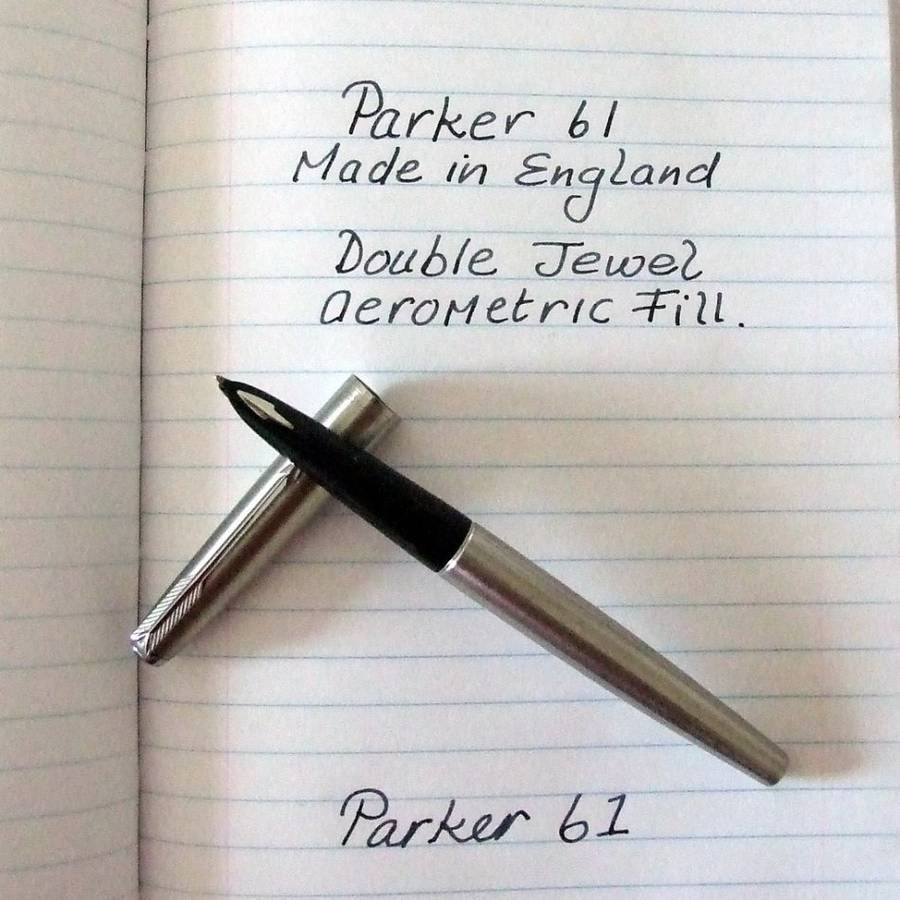 Parker 61
Made in England
Double Jewel
Aerometric Fill.
Parker 61